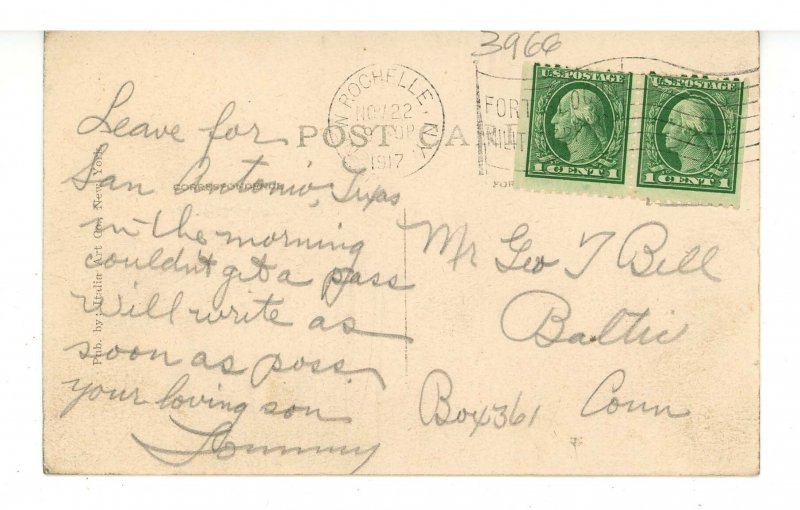 3966
NEW ROCHELLE, N.Y.
NOV 22
1917
FORT
U.S. POSTAGE
1 CENT 1
U.S. POSTAGE
1 CENT 1
POST CA
CORRESPONDENCE
Pub. by Italia Art Co., New York
Leave for
San Antonio, Texas
in the morning
couldn't get a pass
Will write as
soon as poss
your loving son
Mr Geo T Bell
Baltic
Box 361 Conn